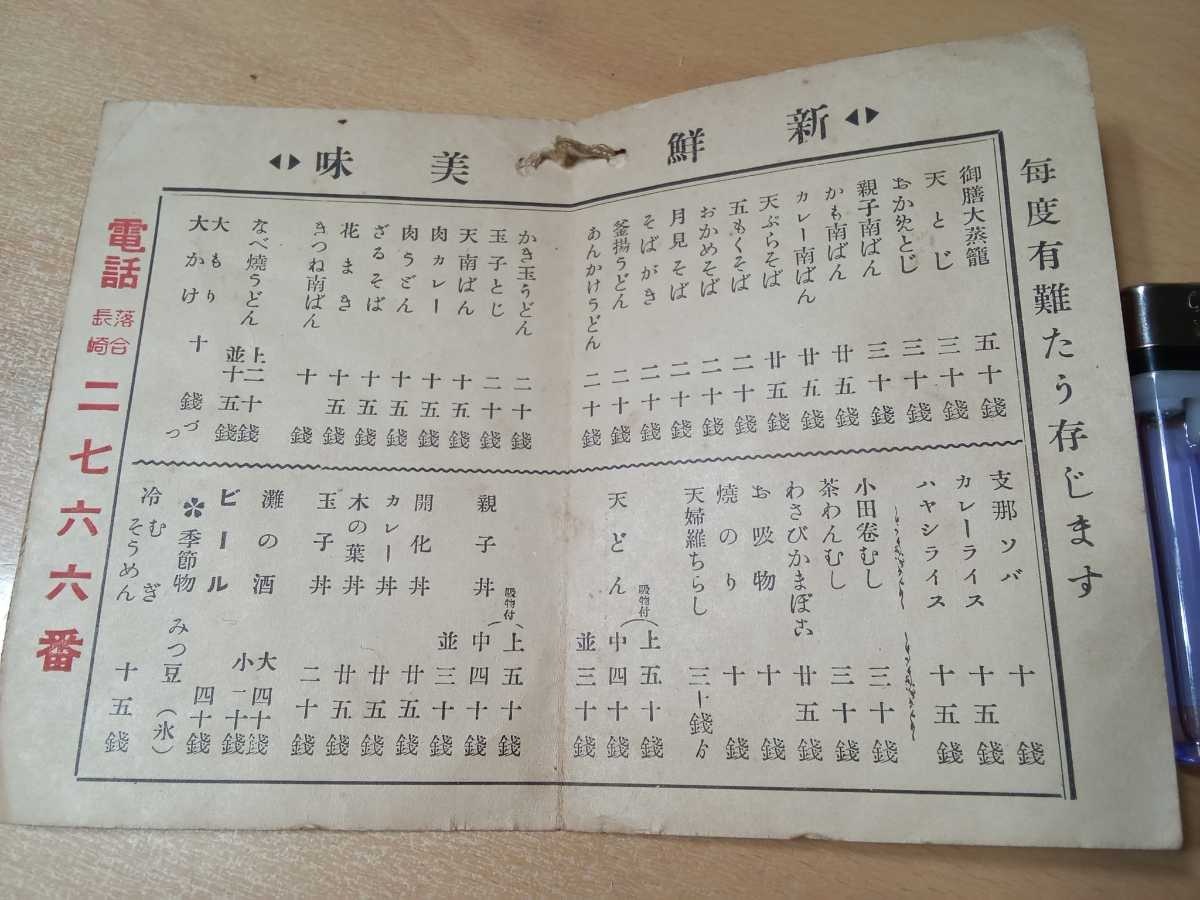 毎度有難たう存じます
新鮮美味
御膳大蒸籠 五十錢
天とじ 三十錢
おかめとじ 三十錢
親子南ばん 三十錢
かも南ばん 廿五錢
カレー南ばん 廿五錢
天ぷらそば 廿五錢
五もくそば 二十錢
おかめそば 二十錢
月見そば 二十錢
そばがき 二十錢
釜揚うどん 二十錢
あんかけうどん 二十錢
かき玉うどん 二十錢
玉子とじ 二十錢
天南ばん 十五錢
肉カレー 十五錢
肉うどん 十五錢
ざるそば 十五錢
花まき 十五錢
きつね南ばん 十錢
なべ焼うどん 上二十錢
並十五錢
大もり
大かけ 十錢づつ
支那ソバ 十錢
カレーライス 十五錢
ハヤシライス 十五錢
小田卷むし 三十錢
茶わんむし 三十錢
わさびかまぼこ 廿五錢
お吸物 十錢
焼のり 十錢
天婦羅ちらし 三十錢より
天どん 吸物付(上五十錢
中四十錢
並三十錢
親子丼 吸物付(上五十錢
中四十錢
並三十錢
開化丼 廿五錢
カレー丼 廿五錢
木の葉丼 廿五錢
玉子丼 二十錢
灘の酒 大四十錢
小二十錢
ビール 四十錢
季節物 みつ豆(氷)
冷むぎ
そうめん 十五錢
電話 落合長崎 二七六六番